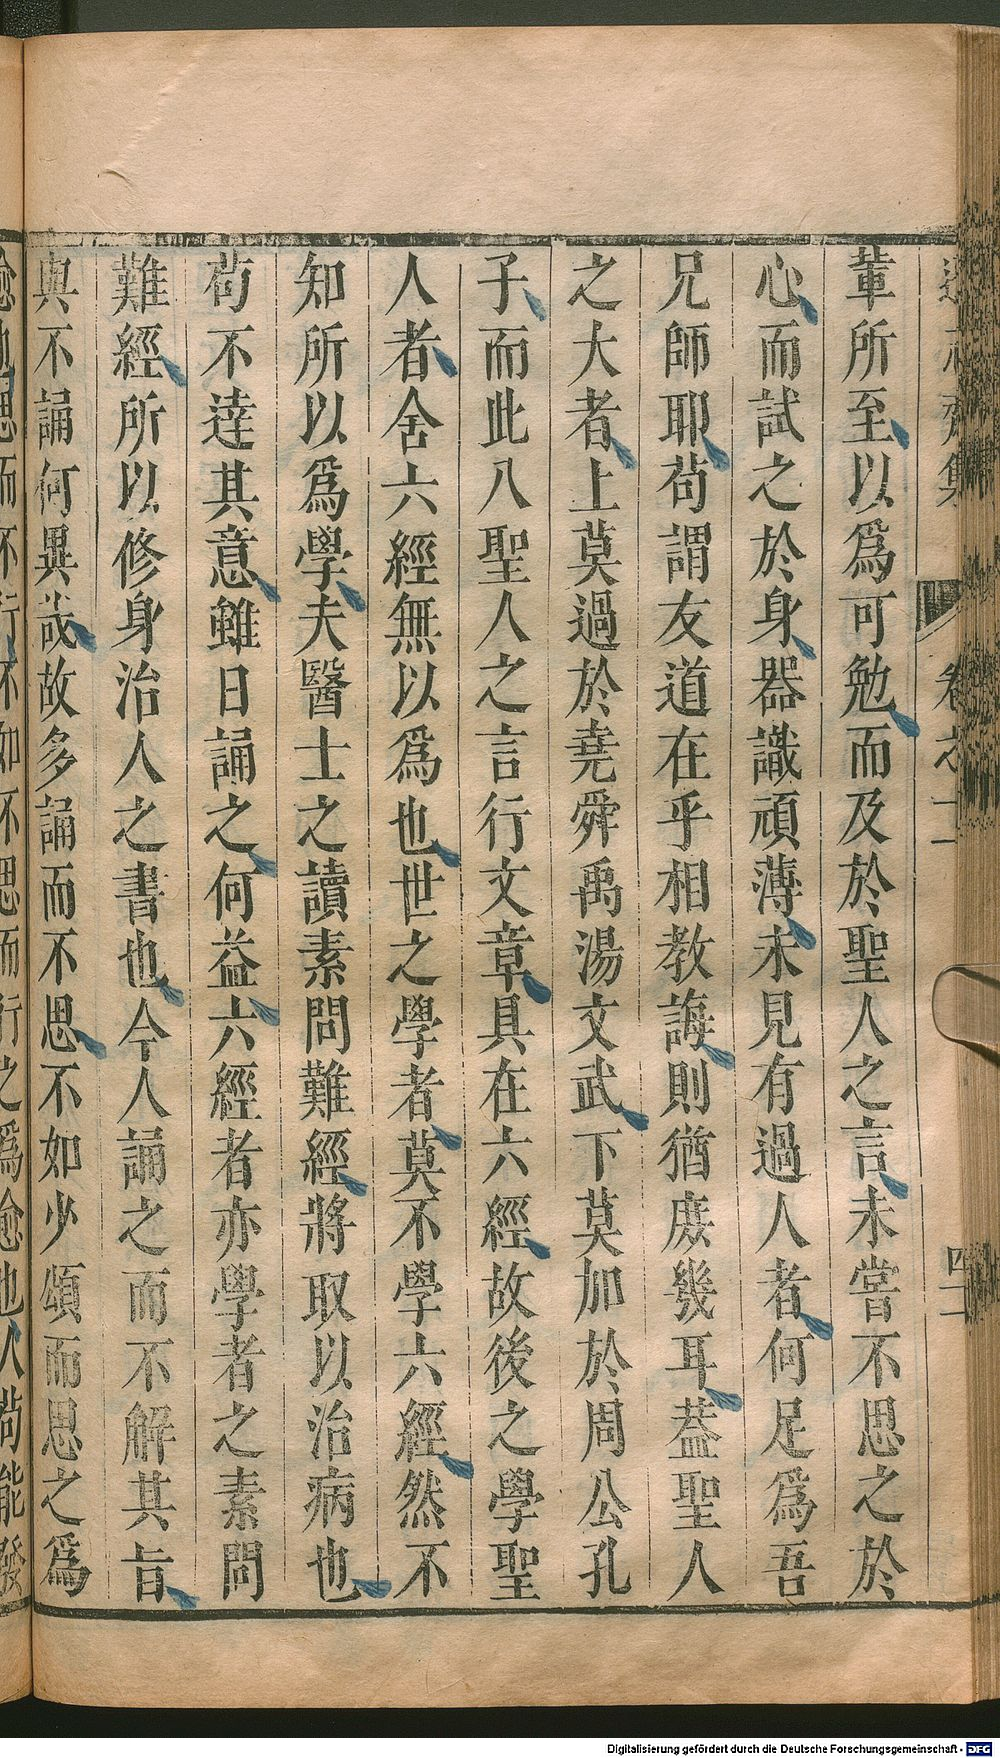 輩所至以爲可勉而及於聖人之言未嘗不思之於
心而試之於身器識頑薄未見有過人者何足爲吾
兄師耶茍謂友道在乎相教誨則猶庶幾耳葢聖人
之大者上莫過於堯舜禹湯文武下莫加於周公孔
子而此八聖人之言行文章具在六經故後之學聖
人者舍六經無以爲也世之學者莫不學六經然不
知所以爲學夫醫士之讀素問難經將取以治病也
茍不達其意雖日誦之何益六經者亦學者之素問
難經所以修身治人之書也今人誦之而不解其旨
與不誦何異哉故多誦而不思不如少頌而思之爲
愈也思而不行不如不思而行之爲愈也人茍能發
卷之十一
四二
Digitalisierung gefördert durch die Deutsche Forschungsgemeinschaft - DFG